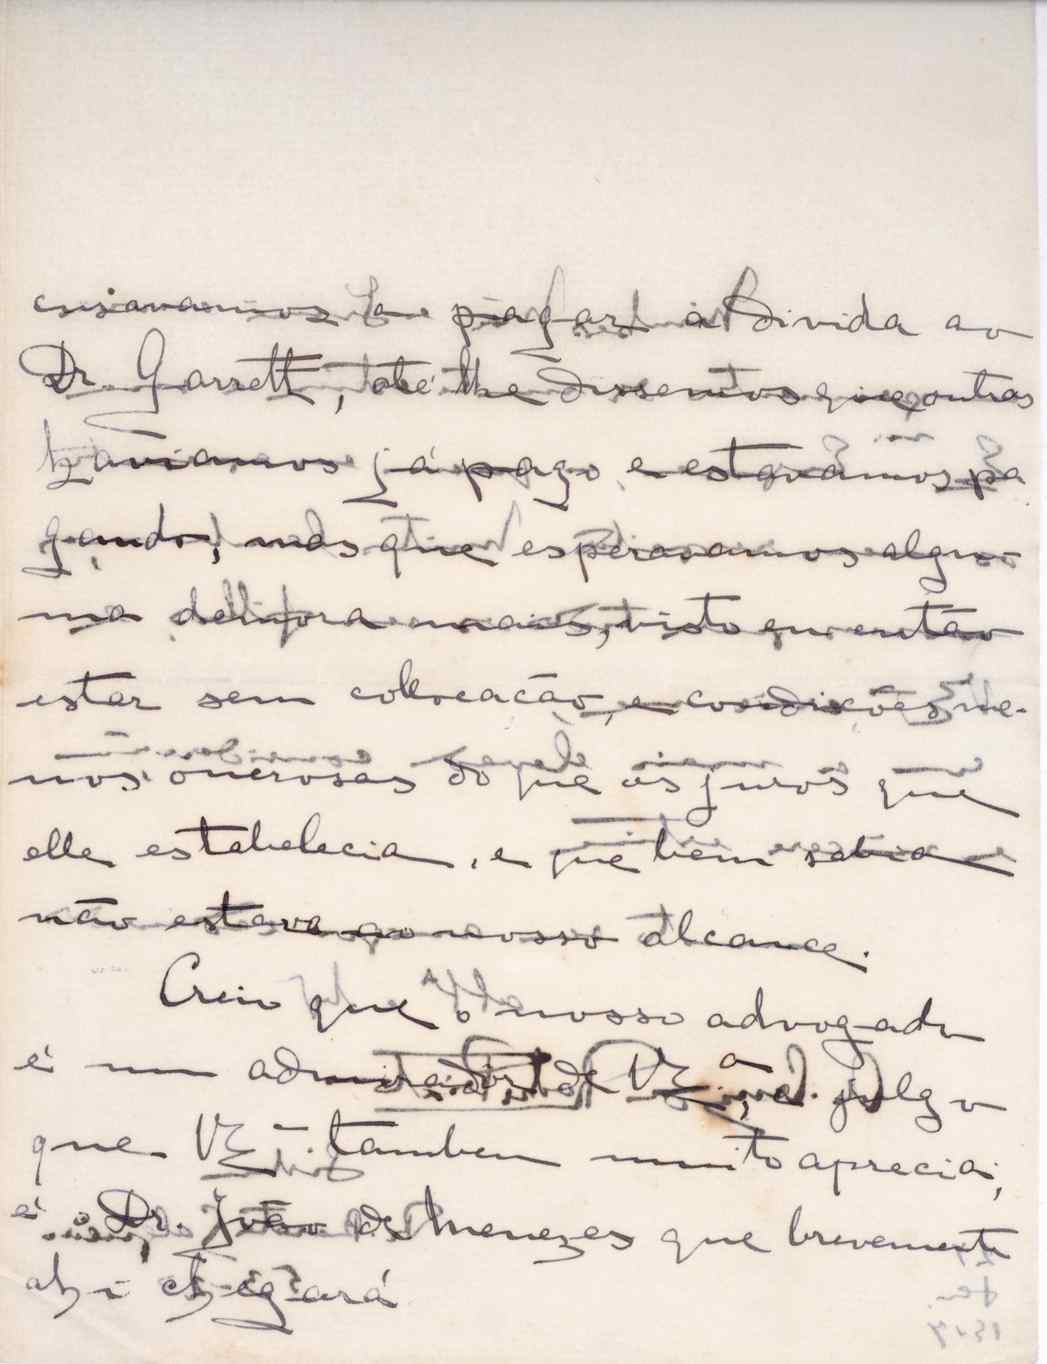 a pagar a divida ao
Dr. Garrett, até lhe dissemos que outras
haviamos já pago e estavamos pa
gando, mas que esperavamos algu-
ma delli fora mais, visto que então
estar sem collocação, e condições me-
nos onerosas do que os juros que
elle estabelecia, e que bem sabia
não estava ao nosso alcance.
Creio que o nosso advogado
é um admirador de V. Ex.ª, e julgo
que V. Ex.ª tambem muito aprecia;
é o Dr. João de Menezes que brevemente
ahi chegará